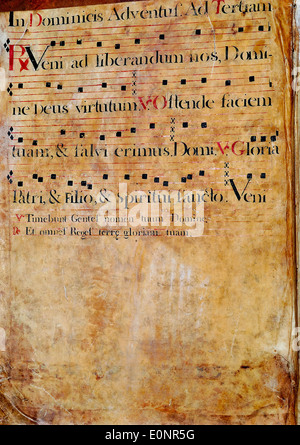 In Dominicis Adventus. Ad Tertiam
℟ Veni ad liberandum nos, Domi-
ne Deus virtutum. ℣. Ostende faciem
tuam, & salvi erimus. Domi. ℣. Gloria
Patri, & Filio, & Spiritui sancto. Veni
℣. Timebunt Gentes nomen tuum Domine,
℟. Et omnes Reges terrę gloriam tuam.
alamy stock photo
E0NR5G
www.alamy.com